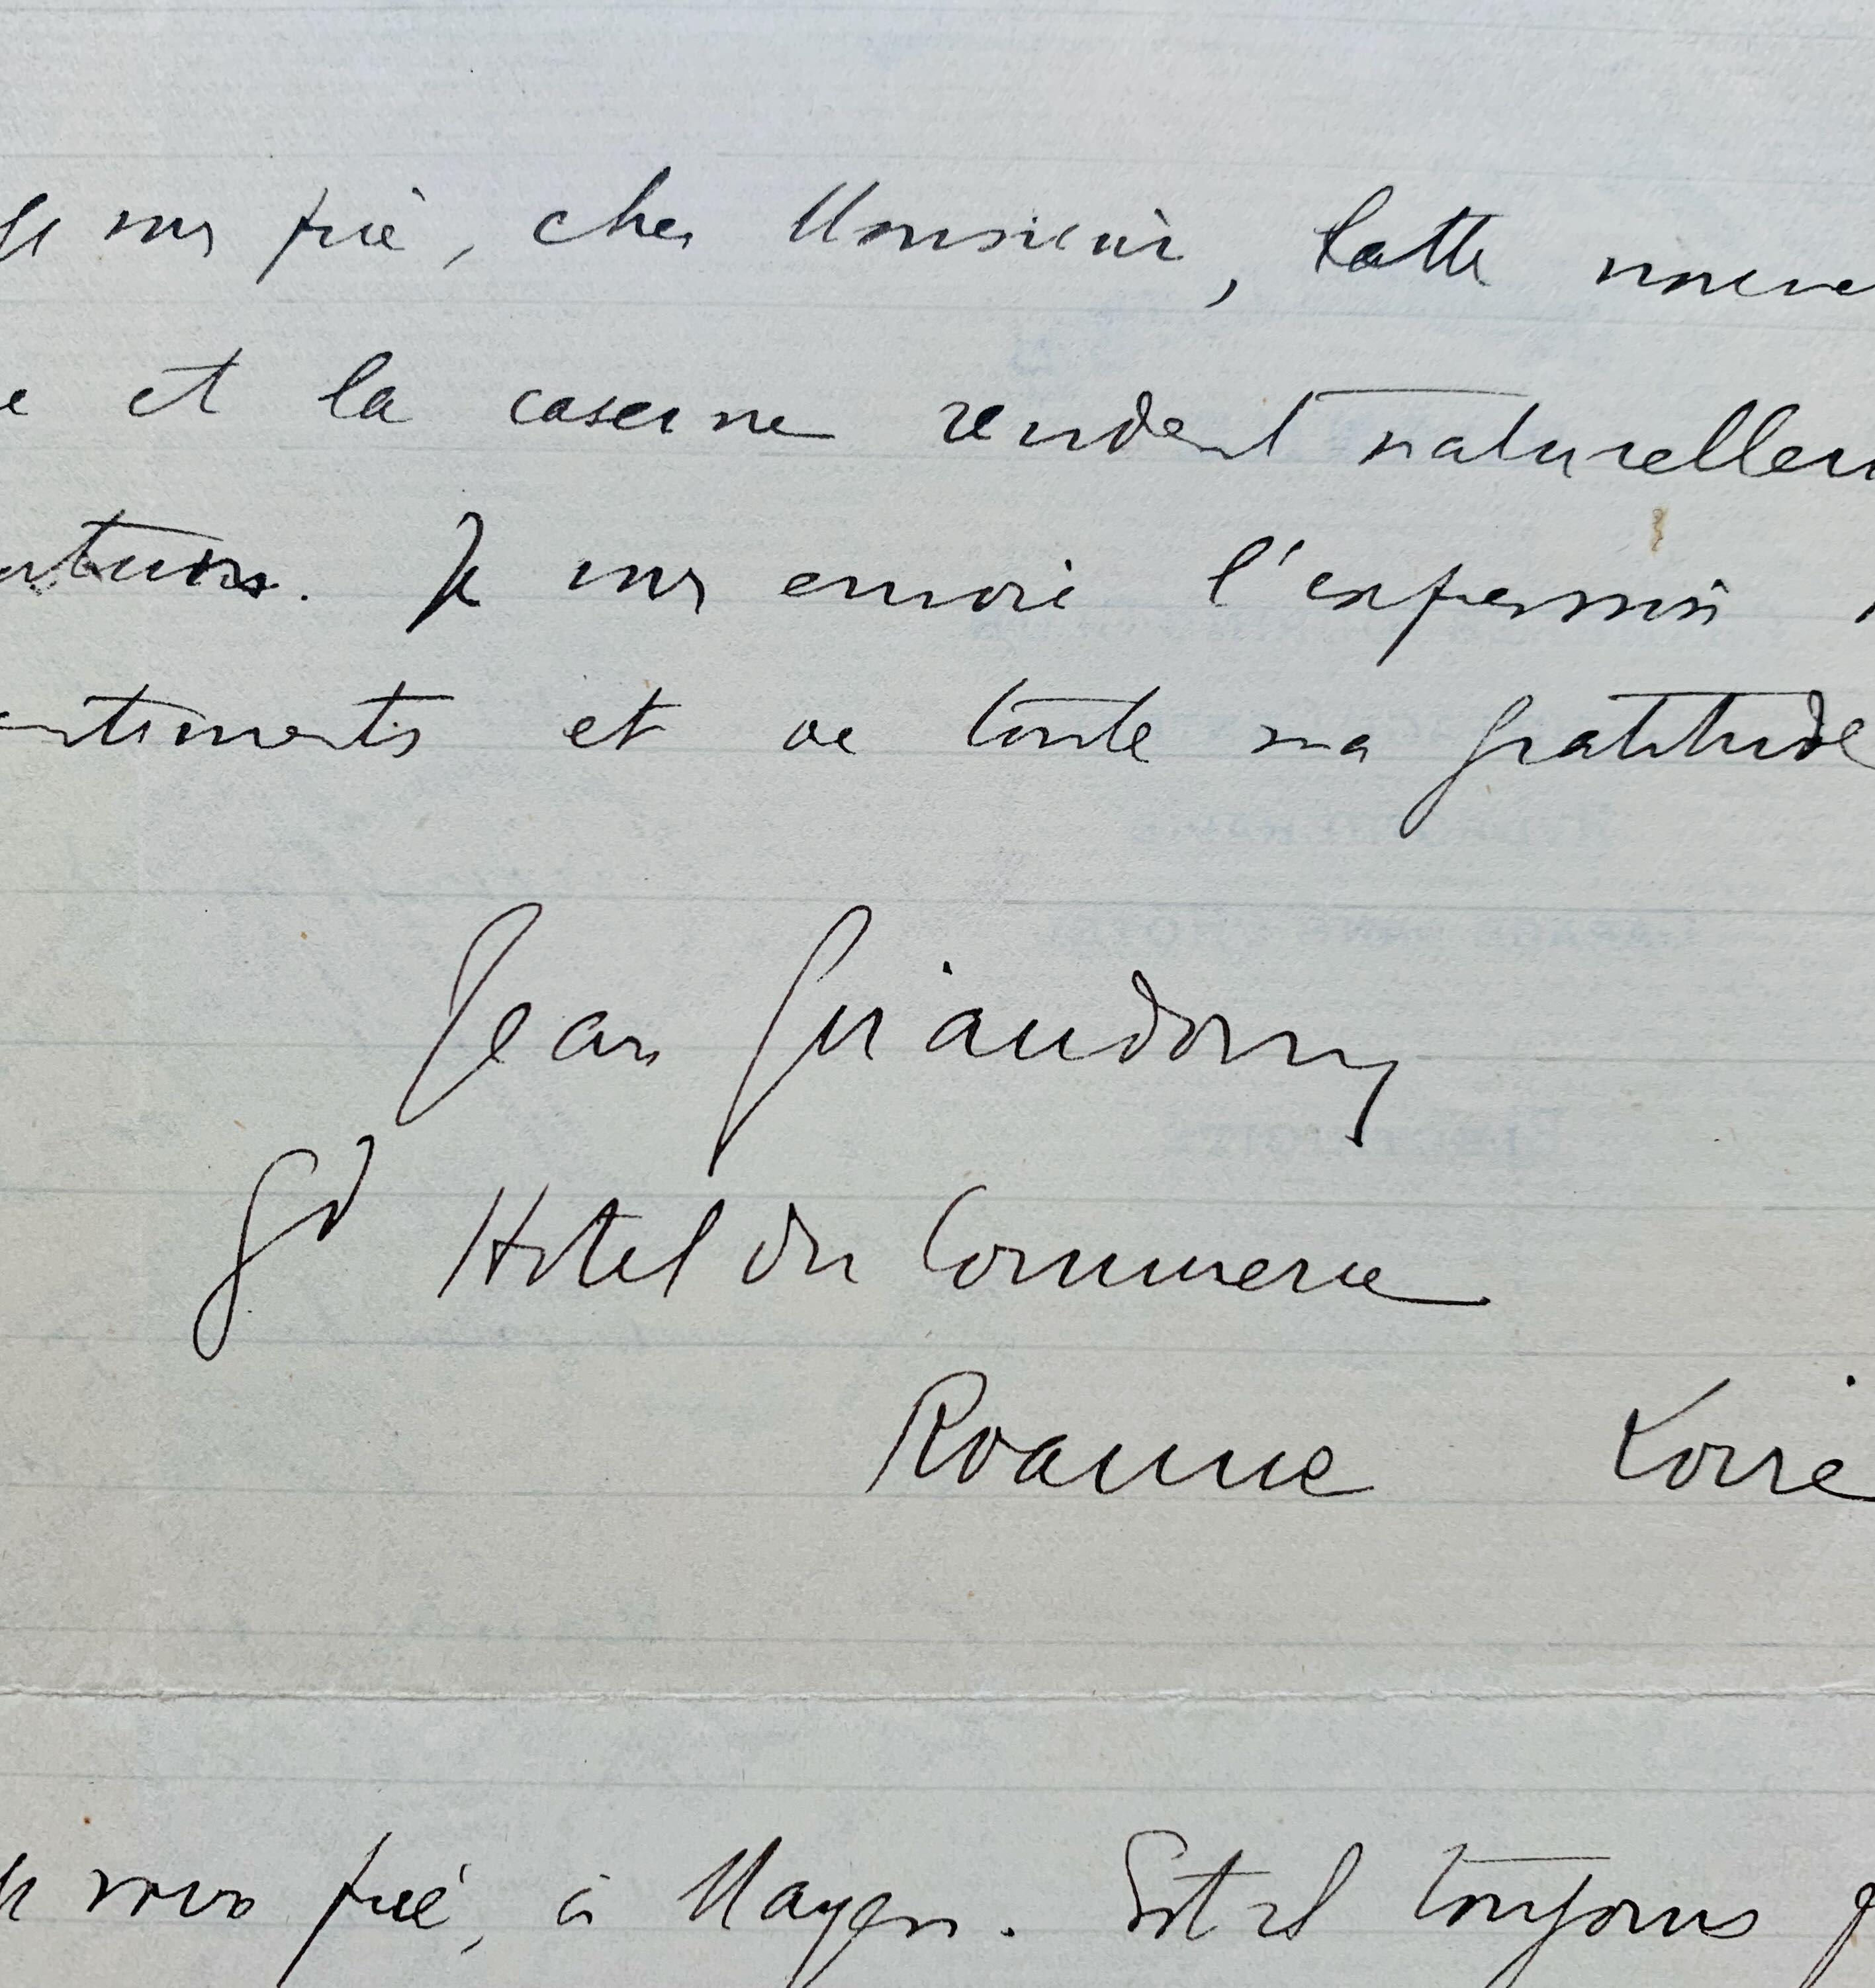 Je vous prie, cher Monsieur, cette
e et la caserne rendent naturellem
Je vous envoie l'expression
entiments et de toute ma gratitude
Jean Giraudoux
Gd Hotel du Commerce
Roanne Loire
Je vous prie, à Mayen. Est il toujours